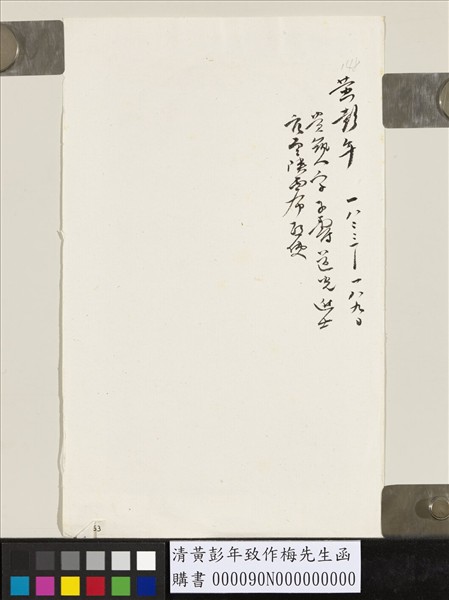 黃彭年 一八二三—一八九〇
貴筑人字子壽道光進士
官至布政使
清黃彭年致作梅先生函
購書 000090N000000000